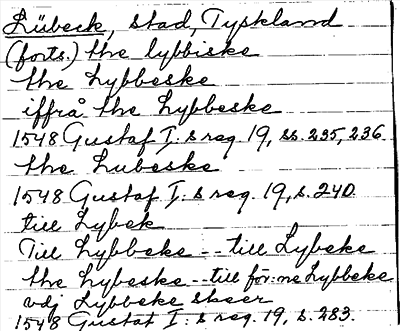 Lübeck, stad, Tyskland
(forts.) the lybbiske
the Lybbeske
iffrå the Lybbeske
1548 Gustaf I:s reg. 19, ss. 235, 236.
the Lubeske
1548 Gustaf I:s reg. 19, s. 240.
till Lybek
Till Lybbeke -- till Lybeke
the Lybeske -- till för:ne Lybbeke
udj Lybbeke skeer
1548 Gustaf I:s reg. 19, s. 283.